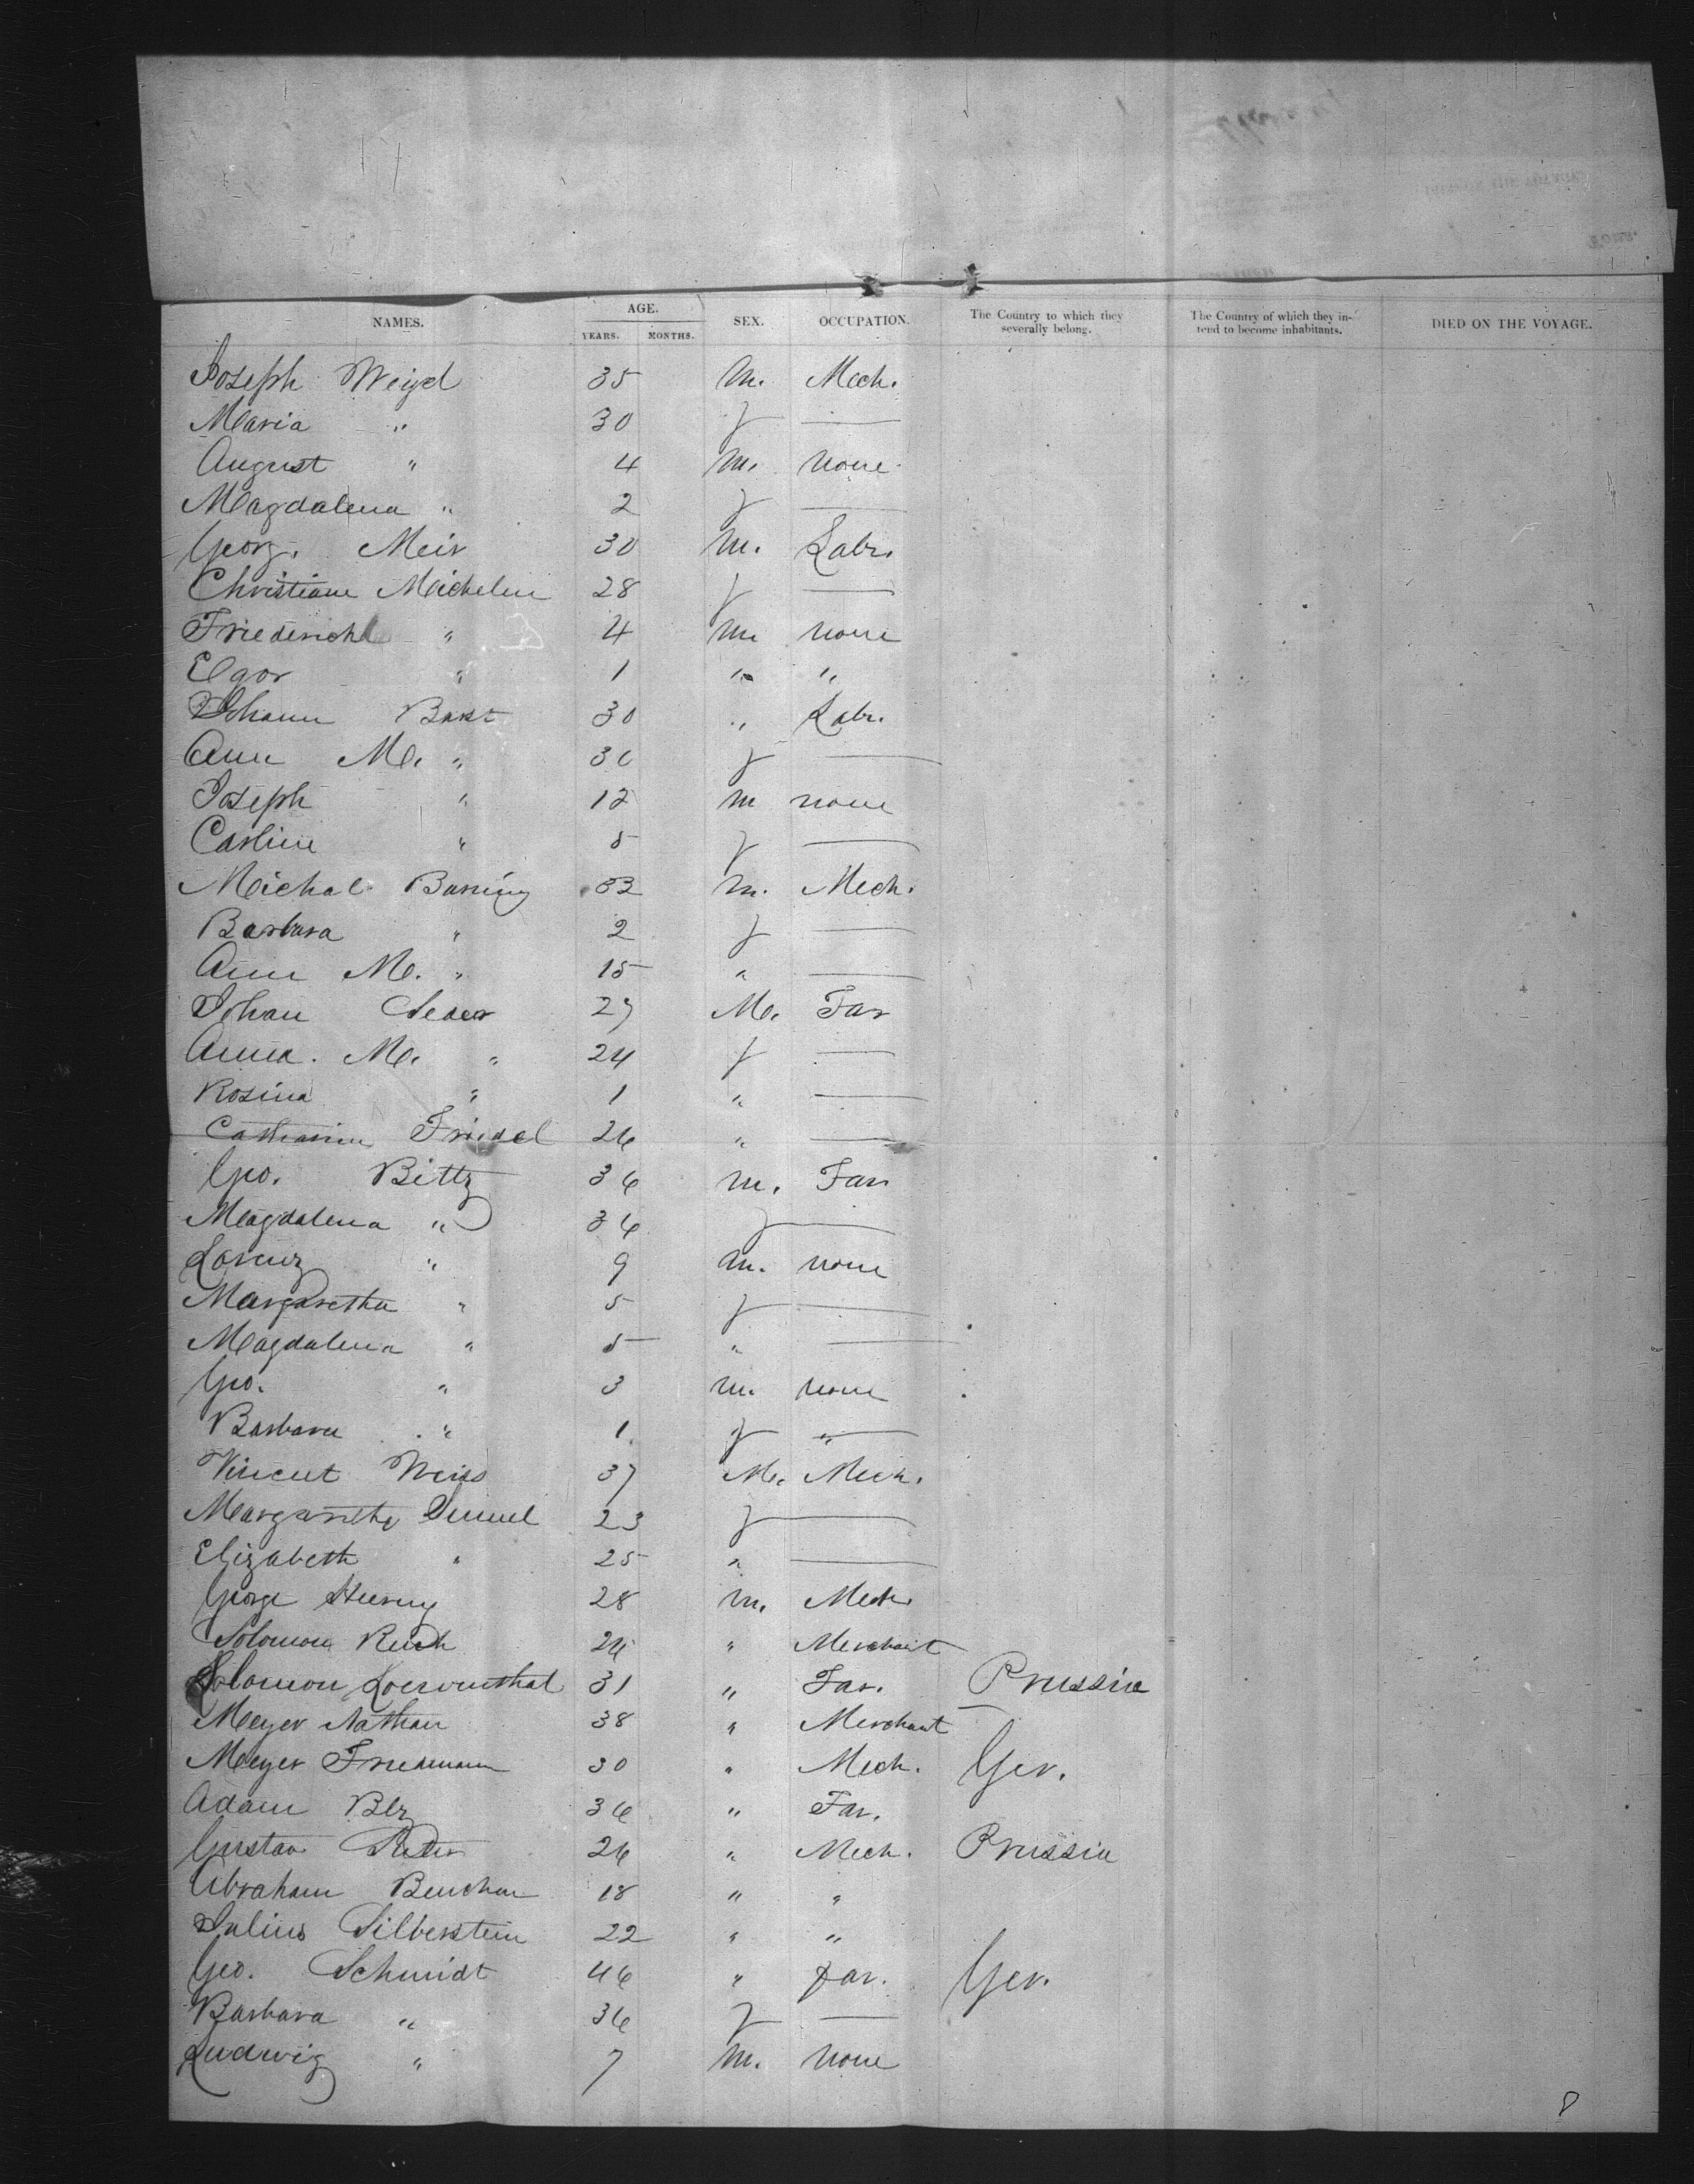 NAMES. AGE. YEARS. MONTHS. SEX. OCCUPATION. The Country to which they severally belong. The Country of which they intend to become inhabitants. DIED ON THE VOYAGE.
Joseph Weigel 35 m. Mech.
Maria " 30 f —
August " 4 m. none
Magdalena " 2 f —
Georg. Meir 30 m. Labr.
Christiane Michelin 28 f —
Friederich " 4 m none
Elgor " 1 " "
Johann Bast 30 " Labr.
Ann M. " 36 f —
Joseph " 12 m none
Carline " 5 f —
Michal Buning 33 m. Mech.
Barbara " 2 f —
Ann M. " 15 " —
Johan 27 M. Far
Anna. M. " 24 f —
Rosina " 1 " —
Catharine Friedel 26 " —
Geo. Bittz 36 m. Far
Magdalena " 36 f —
Lorenz " 9 m. none
Margaretha " 5 f —
Magdalena " 5 " —
Geo. " 3 m. none
Barbara " 1 f "
Vincent Weiss 37 M. Mech.
Margaretha 23 f —
Elizabeth " 25 " —
George 28 m. Mech.
Solomon 26 " Merchant
Solomon Loewenthal 31 " Far. Prussia
Meyer Nathan 38 " Merchant —
Meyer Friedmann 30 " Mech. Ger.
Adam Blz 36 " Far.
Gustav Peter 26 " Mech. Prussia
Abraham 18 " "
Julius Silberstein 22 " "
Geo. Schmidt 46 " far. Ger.
Barbara " 36 f —
Ludwig " 7 m. none
8